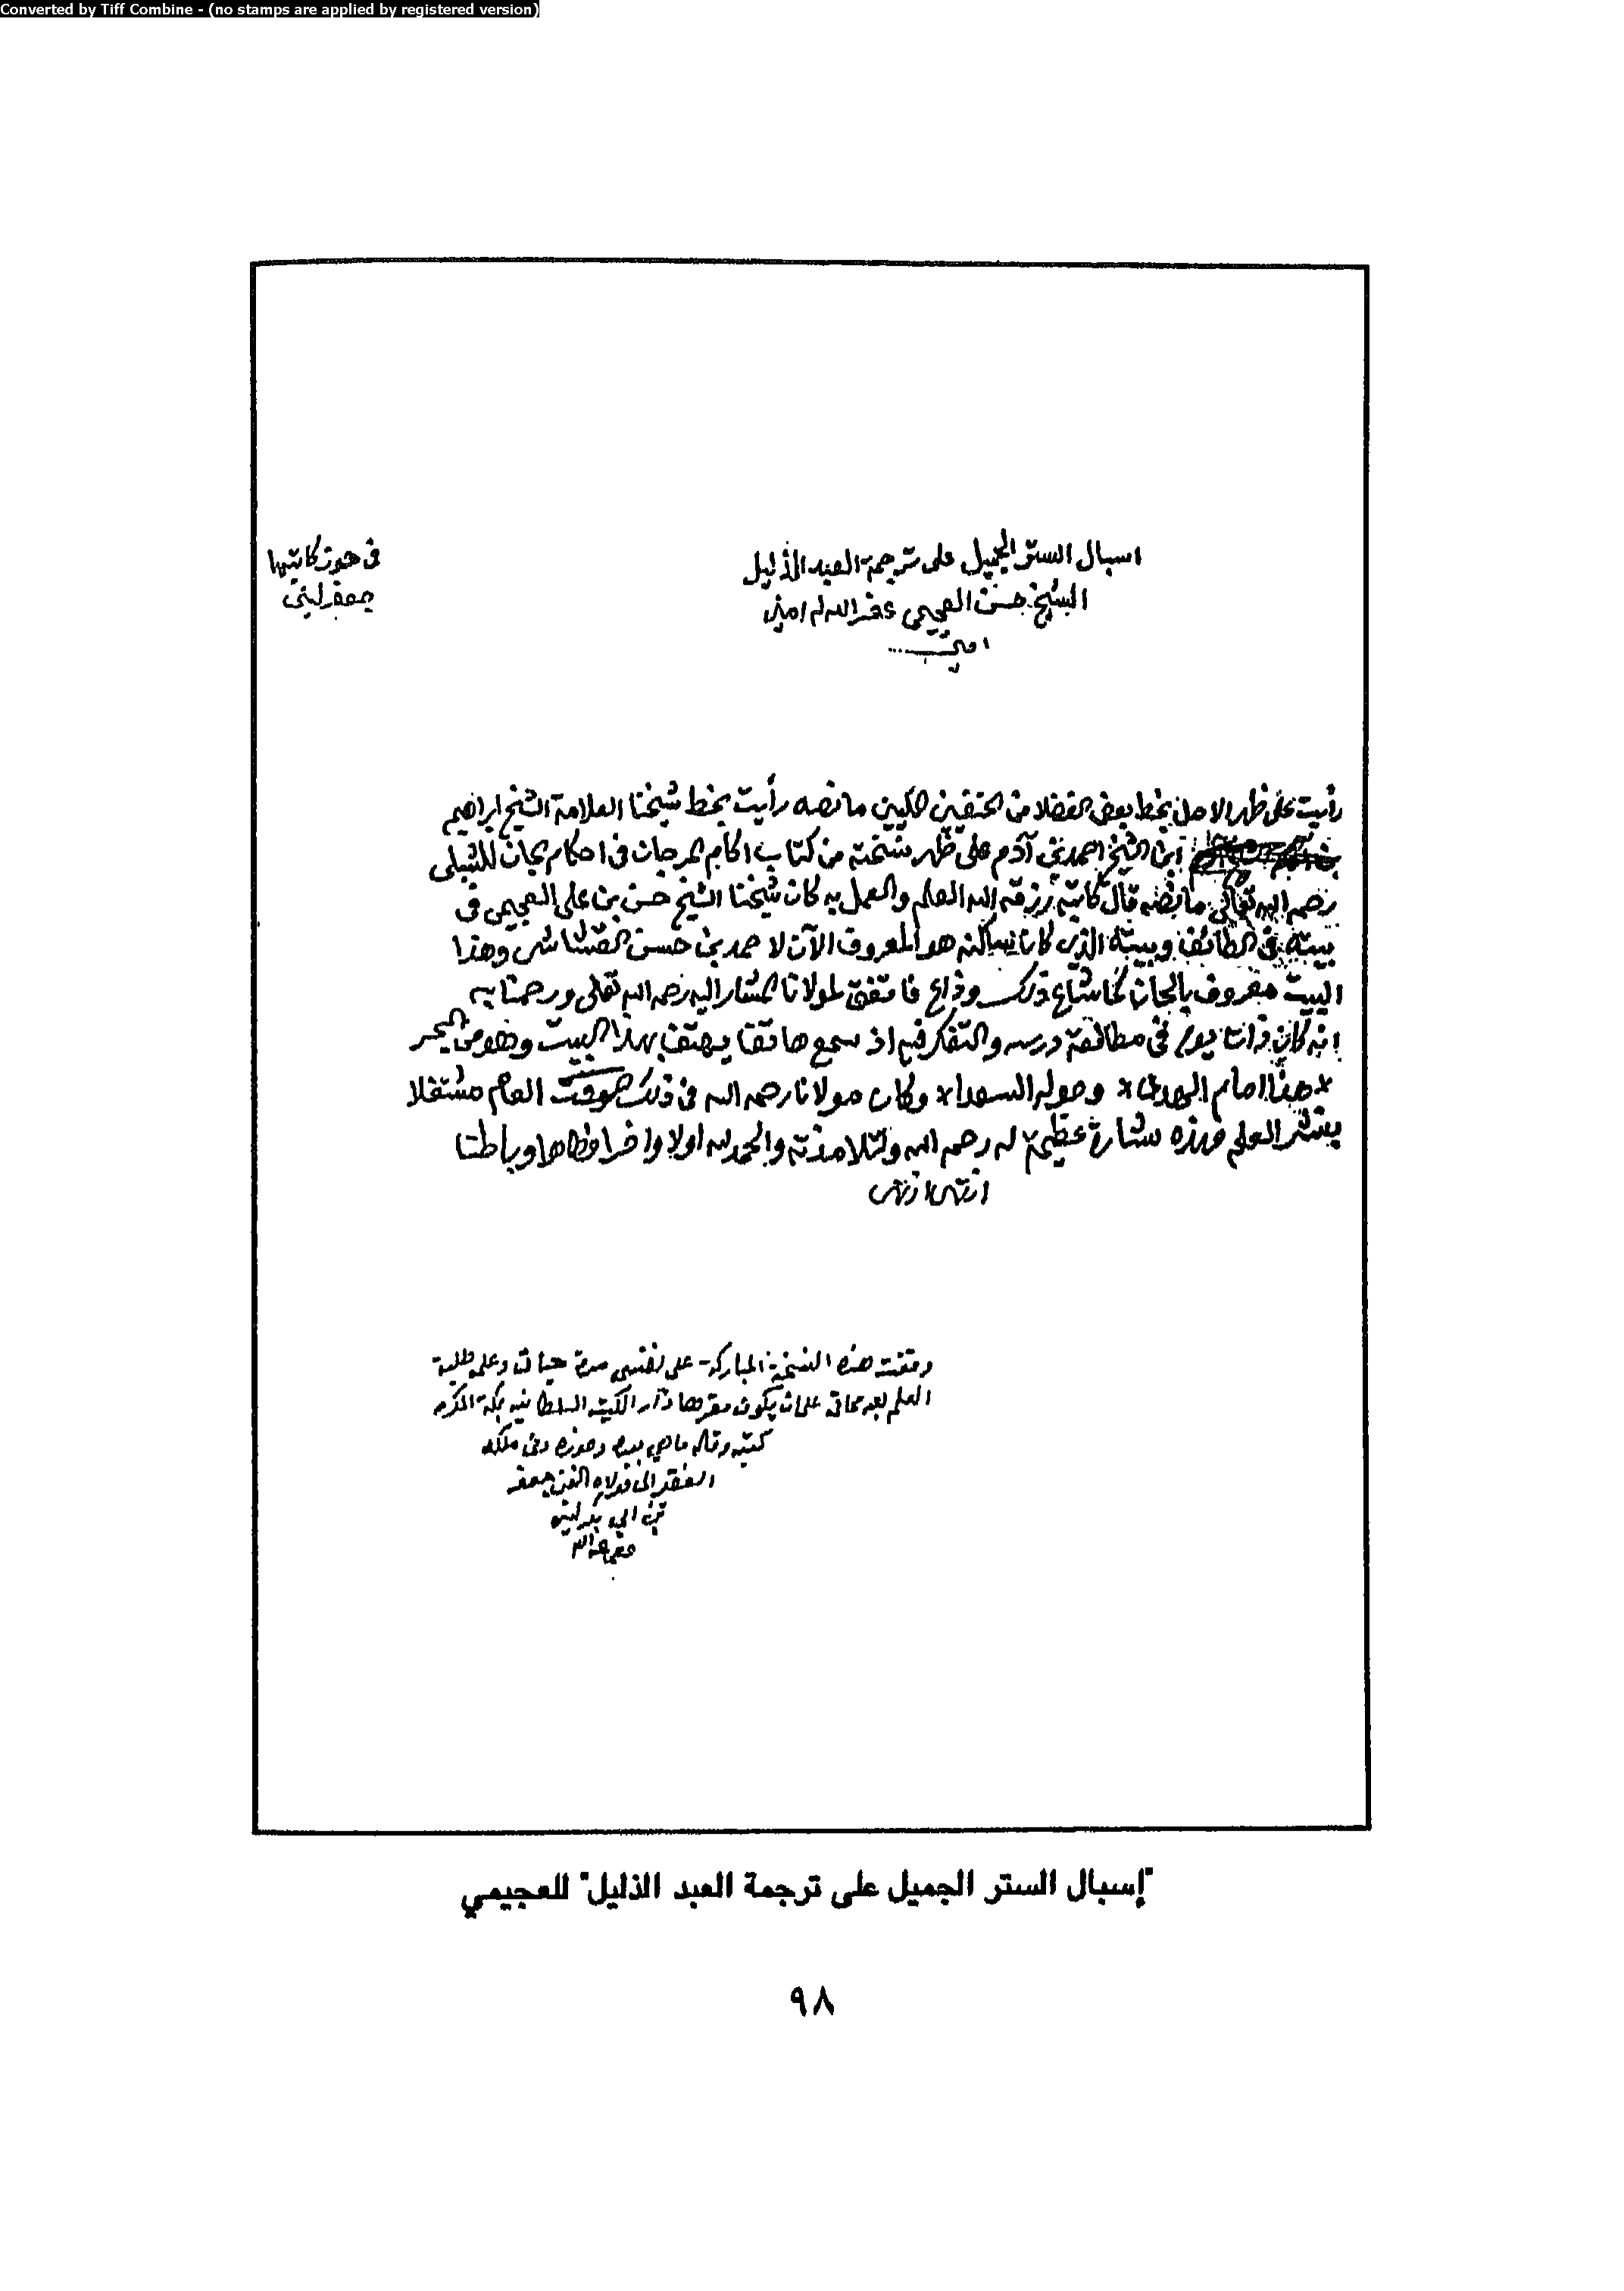 Converted by Tiff Combine - (no stamps are applied by registered version)
اسبال الستر الجميل على ترجمة العبد الذليل
الشيخ حسن العجيمي غفر الله له امين
امين
في حوز كاتبها
جعفر لبني
رأيت على ظهر الاصل بخط بعض الفضلا من الحنفيين المكيين ما نصه رأيت بخط شيخنا العلامة الشيخ ابراهيم
ابن الشيخ احمد بن آدم على ظهر نسخته من كتاب اكام المرجان في احكام الجان للشبلي
رحمه الله تعالى ما نصه قال كاتبه رزقه الله العلم والعمل به كان شيخنا الشيخ حسن بن علي العجيمي في
بيته في الطائف وبيته الذي كان يسكنه هو المعروف الآن لاحمد بن حسن القشاشي وهذا
البيت معروف بالجان كما شاع ذلك وذاع فاتفق لمولانا المشار اليه رحمه الله تعالى ورحمنا به
انه كان ذات يوم في مطالعة درسه والتفكر فيه اذ سمع هاتفا يهتف بهذا البيت وهو من البحر
* هذا امام الهدى * وحوله السعدا * وكان مولانا رحمه الله في ذلك الوقت العام مشتغلا
بنشر العلم وهذه بشارة عظيمة له رحمه الله ولتلامذته والحمد لله اولا واخرا وظاهرا وباطنا
انتهى انتهى
وقفت هذه النسخة المباركة على نفسي مدة حياتي وعلى طلبة
العلم بعد مماتي على ان يكون مقرها دار الكتب السلطانيه بمكة المكرمة
كتبه وقاله ما هي بيده وحوزه وفي ملكه
الفقير الى مولاه الغني جعفر
بن ابي بكر لبني
عفي عنه
"إسبال الستر الجميل على ترجمة العبد الذليل" للعجيمي
٩٨